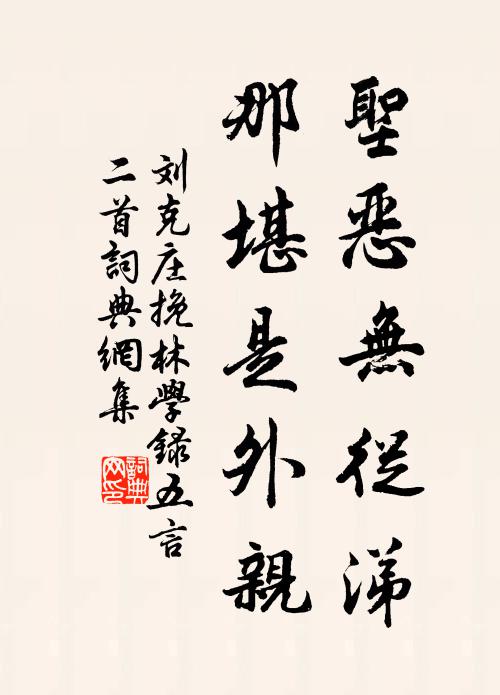 聖惡無從涕
那堪是外親
刘克庄挽林學錄五言
二首詞典網集
詞典
网印